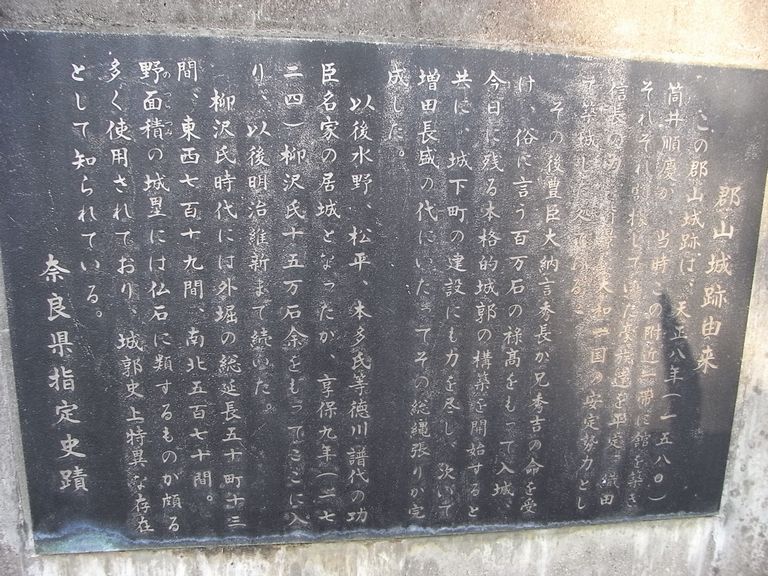 郡山城跡由来
この郡山城跡は、天正八年(一五八〇)
筒井順慶が、当時この附近一帯に館を築き
それぞれ割拠して
信長の
て築城し
その後豊臣大納言秀長が兄秀吉の命を受
け、俗に言う百万石の禄高をもって入城、
今日に残る本格的城郭の構築を開始すると
共に、城下町の建設にも力を尽し、次いで
増田長盛の代にいたってその総縄張りが完
成した。
以後水野、松平、本多氏等徳川譜代の功
臣名家の居城となったが、享保九年(一七
二四)柳沢氏十五万石余をもってここに入
り、以後明治維新まで続いた。
柳沢氏時代には外堀の総延長五十町十三
間、東西七百十九間、南北五百七十間。
野面積の城塁には仏石に類するものが頗る
のづらつみ
多く使用されており、城郭史上特異な存在
として知られている。
奈良県指定史蹟